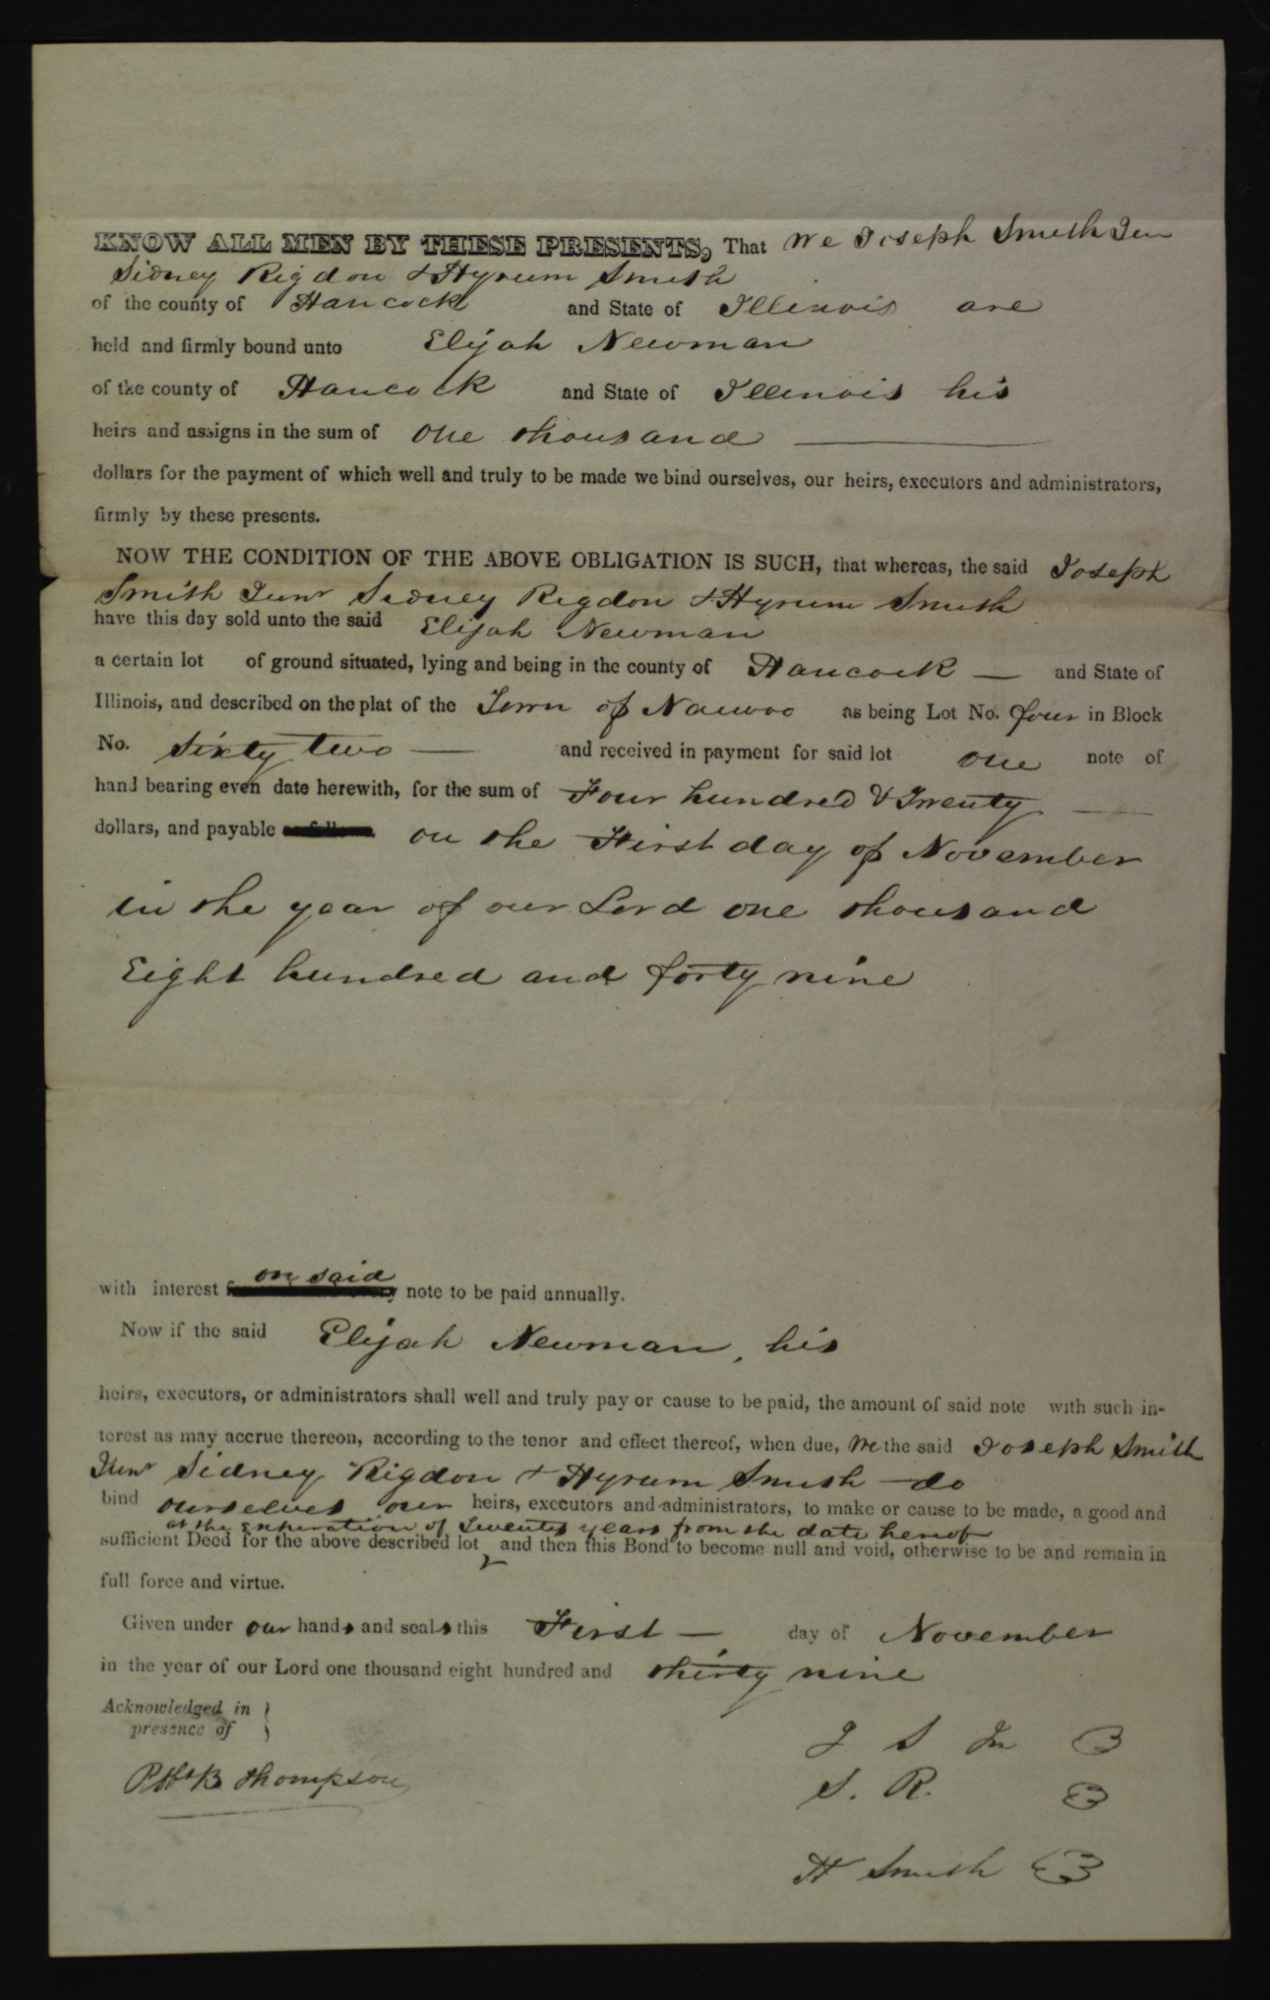 KNOW ALL MEN BY THESE PRESENTS, That We Joseph Smith Jun
Sidney Rigdon & Hyrum Smith
of the county of Hancock and State of Illinois are
held and firmly bound unto Elijah Newman
of the county of Hancock and State of Illinois his
heirs and assigns in the sum of One thousand
dollars for the payment of which well and truly to be made we bind ourselves, our heirs, executors and administrators,
firmly by these presents.
NOW THE CONDITION OF THE ABOVE OBLIGATION IS SUCH, that whereas, the said Joseph
Smith Junr Sidney Rigdon & Hyrum Smith
have this day sold unto the said Elijah Newman
a certain lot of ground situated, lying and being in the county of Hancock — and State of
Illinois, and described on the plat of the Town of Nauvoo as being Lot No. four in Block
No. Sixty two — and received in payment for said lot one note of
hand bearing even date herewith, for the sum of Four hundred & Twenty
dollars, and payable as follows on the First day of November
in the year of our Lord one thousand
Eight hundred and forty nine
on said
with interest note to be paid annually.
Now if the said Elijah Newman, his
heirs, executors, or administrators shall well and truly pay or cause to be paid, the amount of said note with such in-
terest as may accrue thereon, according to the tenor and effect thereof, when due, We the said Joseph Smith
Junr Sidney Rigdon & Hyrum Smith do
bind ourselves our heirs, executors and administrators, to make or cause to be made, a good and
at the expiration of Twenty years from the date hereof
sufficient Deed for the above described lot, and then this Bond to become null and void, otherwise to be and remain in
full force and virtue.
Given under our hands and seals this First — day of November
in the year of our Lord one thousand eight hundred and thirty nine
Acknowledged in
presence of
J S Jn
S. R.
Thompson
H Smith